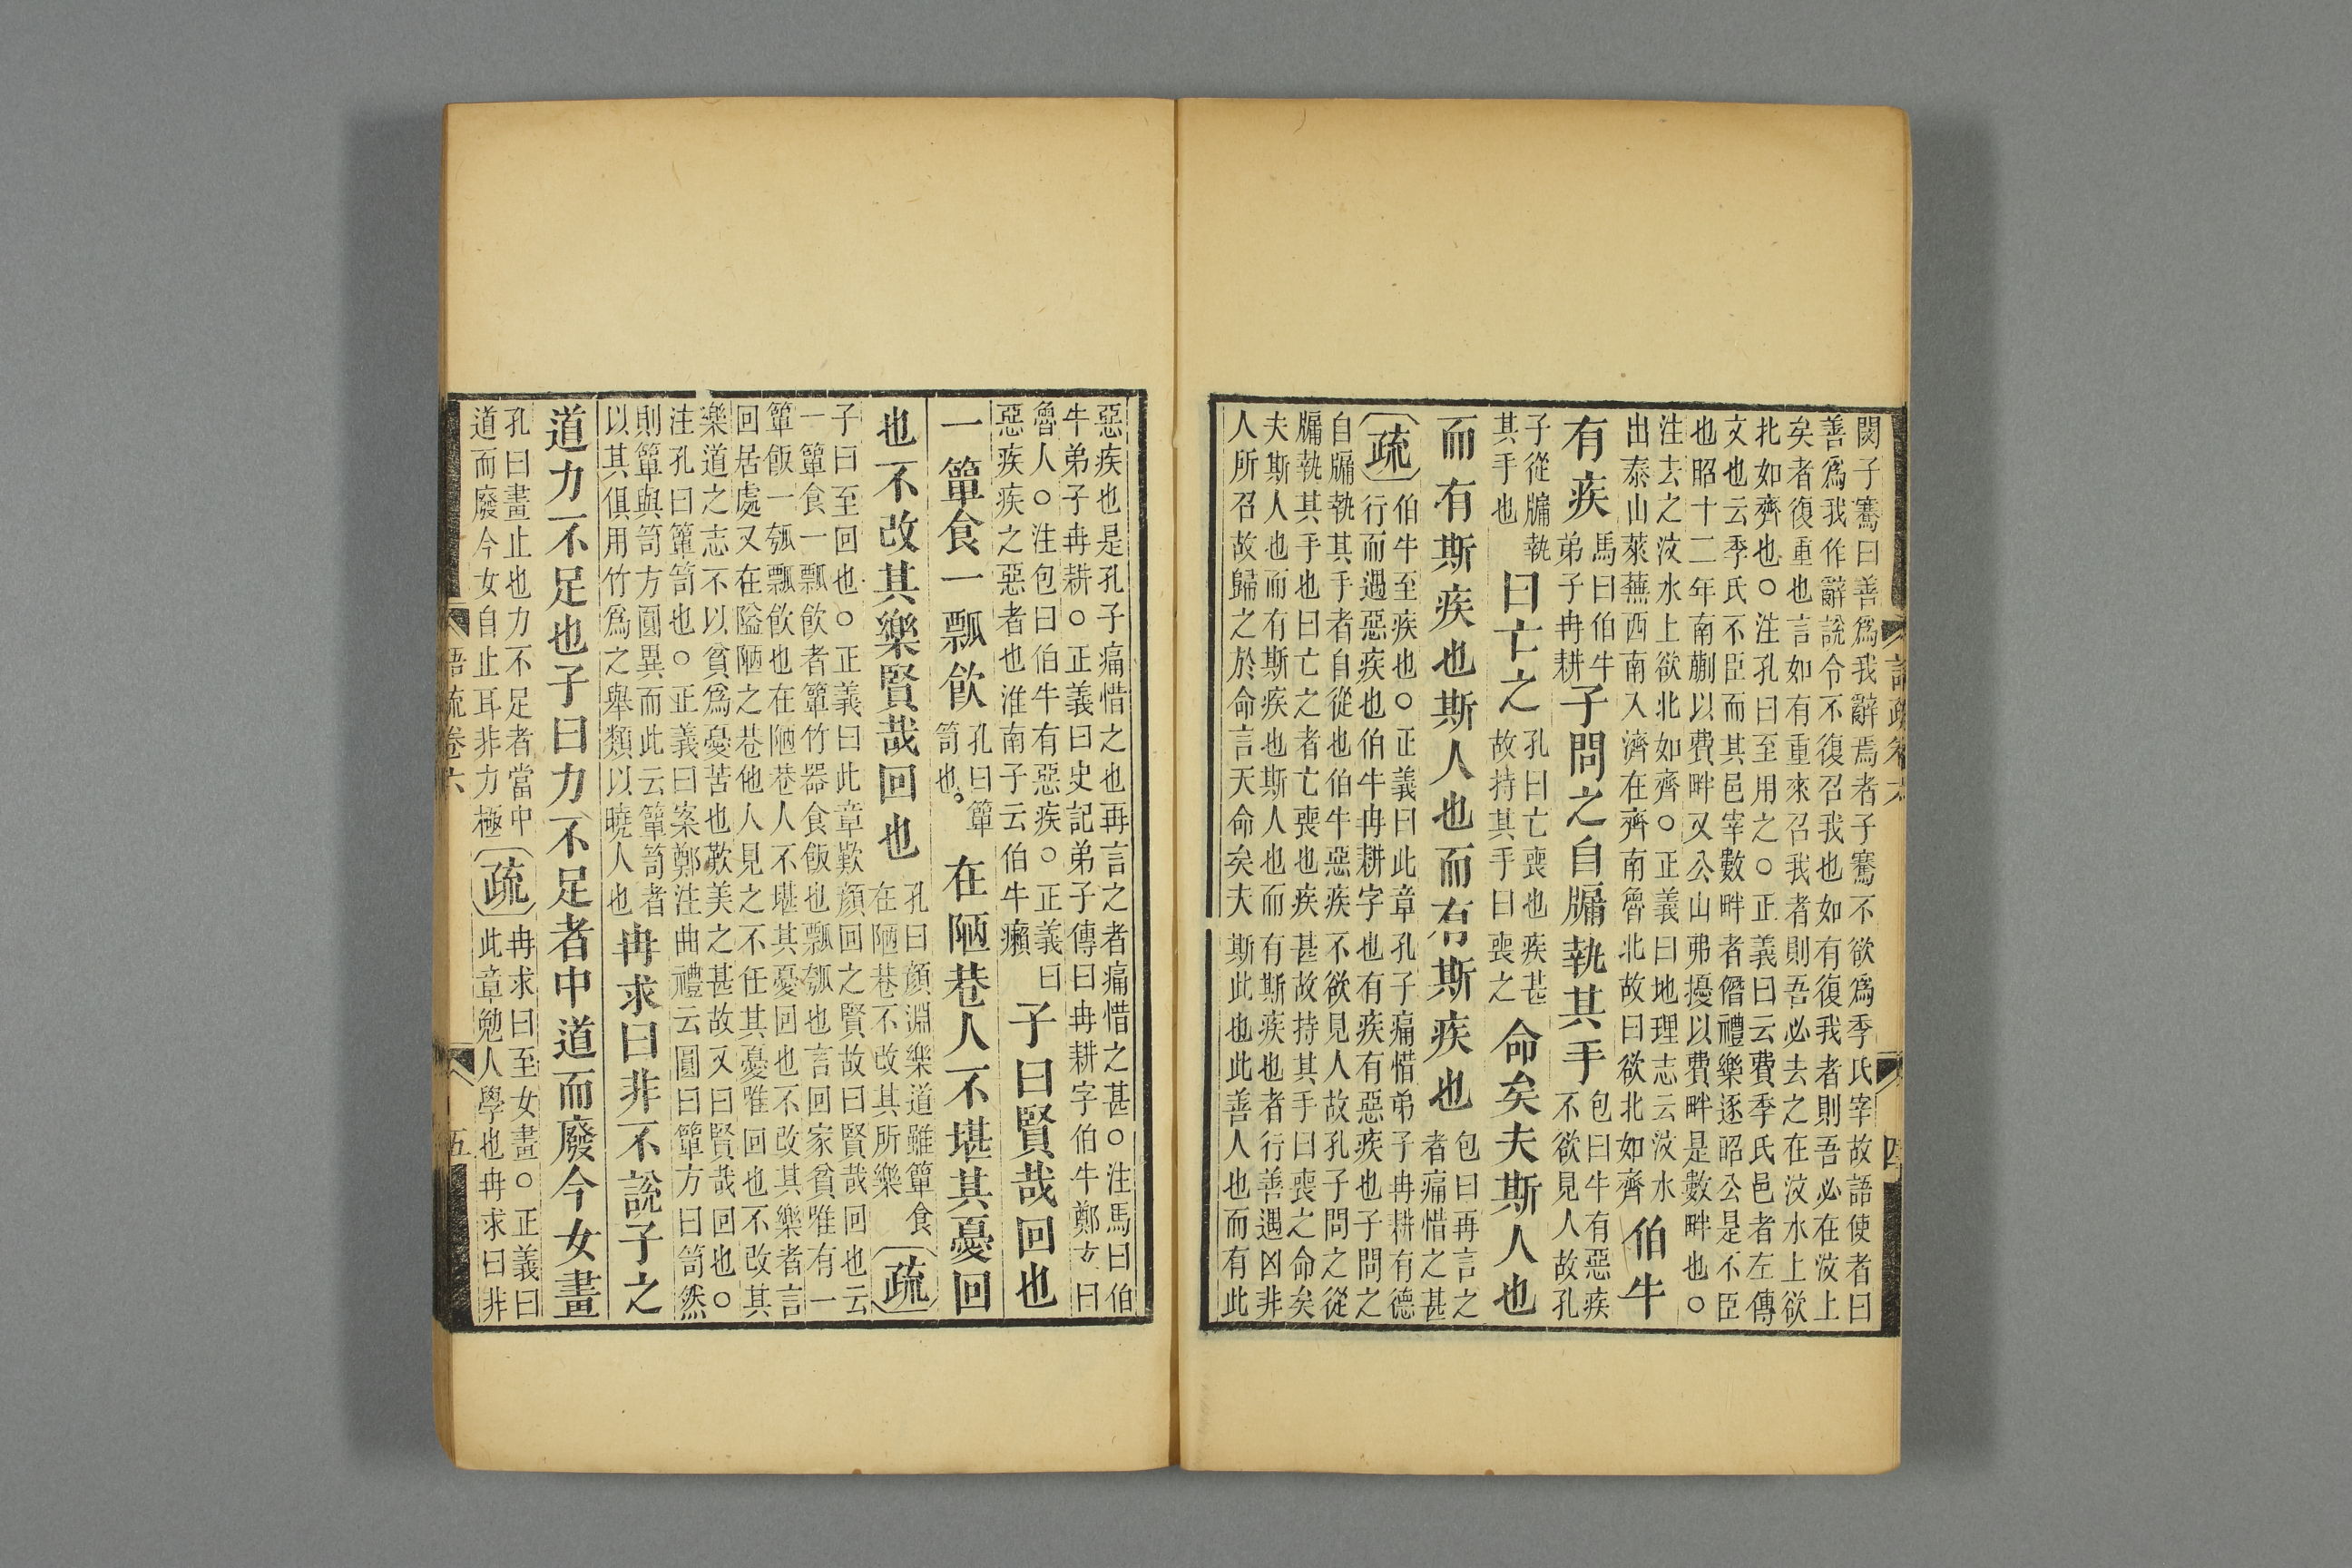 閔子騫曰善爲我辭焉者子騫不欲爲季氏宰故語使者曰
善爲我作辭說令不復召我也如有復我者則吾必在汶上
矣者復重也言如有重來召我者則吾必去之在汶水上欲
北如齊也○注孔曰至用之○正義曰云費季氏邑者左傳
文也云季氏不臣而其邑宰數畔者僭禮樂逐昭公是不臣
也昭十二年南蒯以費畔又公山弗擾以費畔是數畔也○
注去之汶水上欲北如齊○正義曰地理志云汶水
出泰山萊蕪西南入濟在齊南魯北故曰欲北如齊
伯牛
有疾
馬曰伯牛
弟子冉耕
子問之自牖執其手
包曰牛有惡疾
不欲見人故孔
子從牖執
其手也
曰亡之
孔曰亡喪也疾甚
故持其手曰喪之
命矣夫斯人也
而有斯疾也斯人也而有斯疾也
包曰再言之
者痛惜之甚
疏
伯牛至疾也○正義曰此章孔子痛惜弟子冉耕有德
行而遇惡疾也伯牛冉耕字也有疾有惡疾也子問之
自牖執其手者自從也伯牛惡疾不欲見人故孔子問之從
牖執其手也曰亡之者亡喪也疾甚故持其手曰喪之命矣
夫斯人也而有斯疾也斯人也而有斯疾也者行善遇凶非
人所召故歸之於命言天命矣夫斯此也此善人也而有此
惡疾也是孔子痛惜之也再言之者痛惜之甚○注馬曰伯
牛弟子冉耕○正義曰史記弟子傳曰冉耕字伯牛鄭玄曰
魯人○注包曰伯牛有惡疾○正義曰
惡疾疾之惡者也淮南子云伯牛癩
子曰賢哉回也
一簞食一瓢飮
孔曰簞
笥也。
在陋巷人不堪其憂回
也不改其樂賢哉回也
孔曰顏淵樂道雖簞食
在陋巷不改其所樂
疏
子曰至回也○正義曰此章歎顏回之賢故曰賢哉回也云
一簞食一瓢飮者簞竹器食飯也瓢瓠也言回家貧唯有一
簞飯一瓠瓢飮也在陋巷人不堪其憂回也不改其樂者言
回居處又在隘陋之巷他人見之不任其憂唯回也不改其
樂道之志不以貧爲憂苦也歎美之甚故又曰賢哉回也○
注孔曰簞笥也○正義曰案鄭注曲禮云圓曰簞方曰笥然
則簞與笥方圓異而此云簞笥者
以其俱用竹爲之舉類以曉人也
冉求曰非不說子之
道力不足也子曰力不足者中道而廢今女畫
孔曰畫止也力不足者當中
道而廢今女自止耳非力極
疏
冉求曰至女畫○正義曰
此章勉人學也冉求曰非
語疏卷六
五